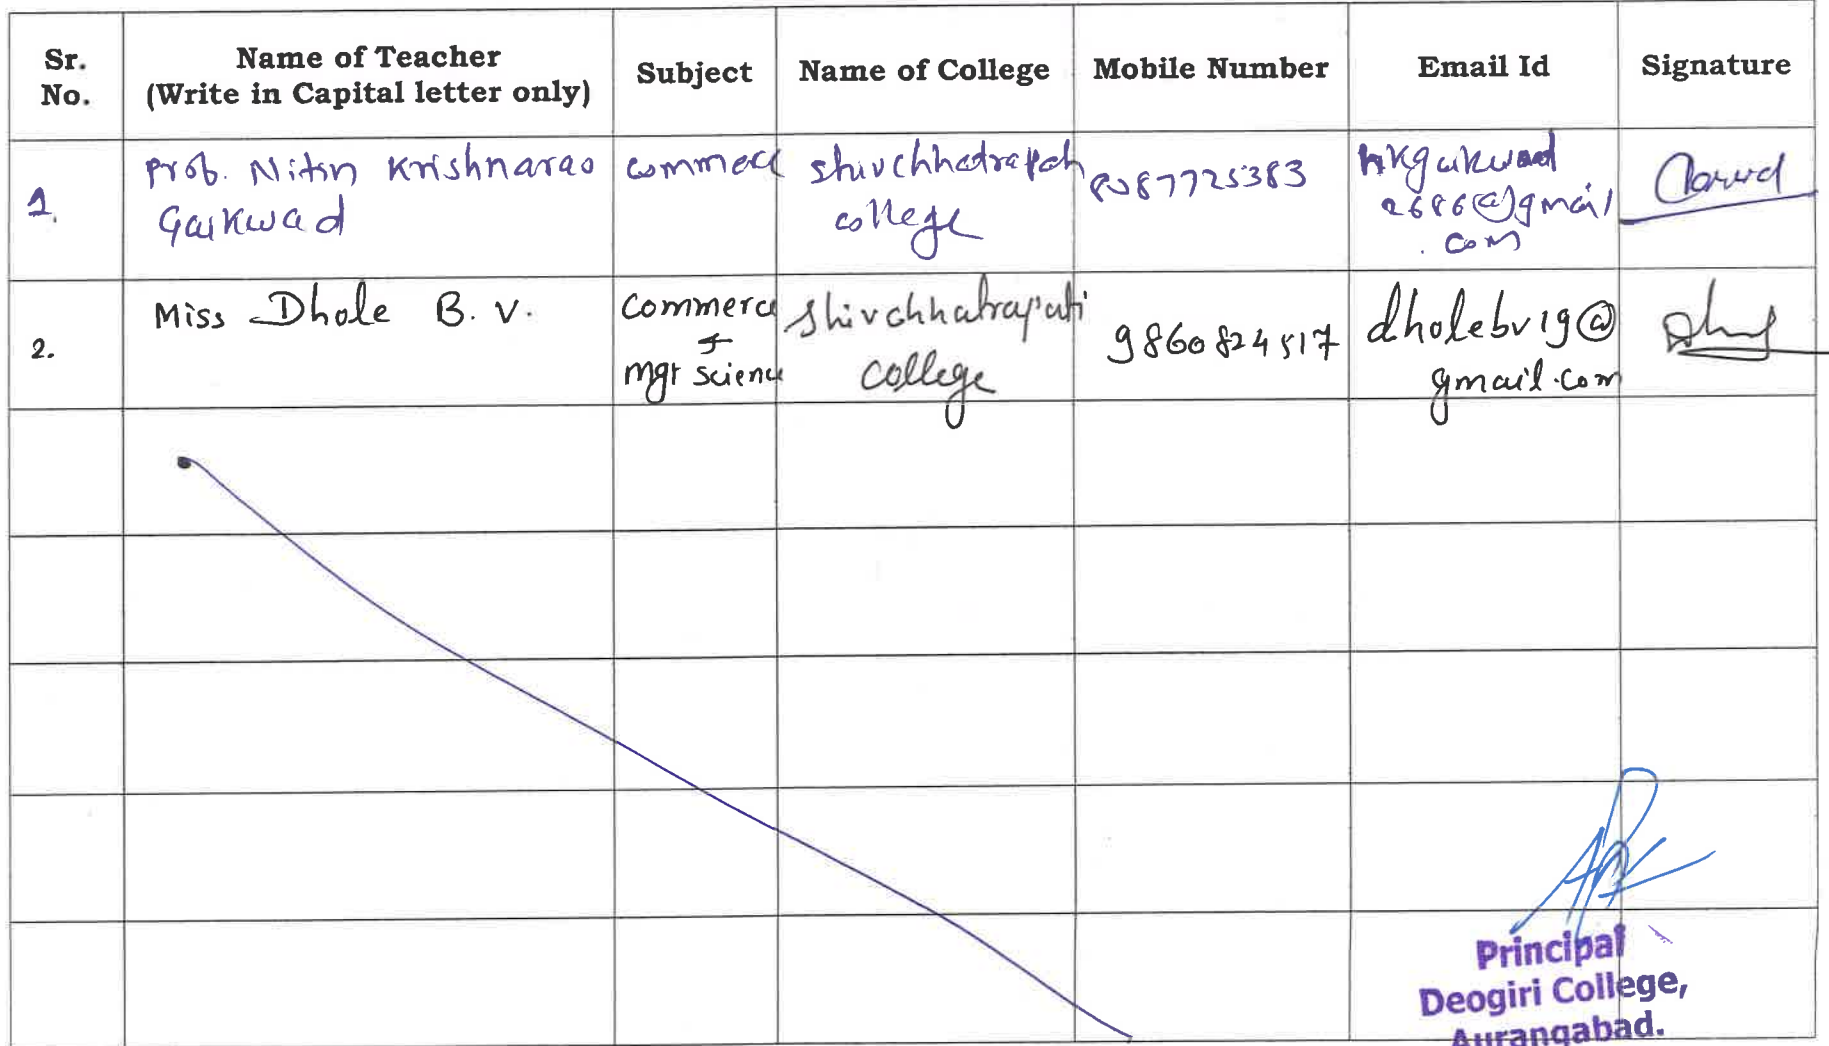 Sr. No.
Name of Teacher
(Write in Capital letter only)
Subject
Name of College
Mobile Number
Email Id
Signature
1.
Prof. Nitin Krishnarao
Gaikwad
commerce
shivchhatrapati
college
8087725383
nkgaikwad
2686@gmail
.com
2.
Miss Dhole B. V.
Commerce
+
Mgt Science
Shivchhatrapati
College
9860824517
dholebv19@
gmail.com
Principal
Deogiri College,
Aurangabad.